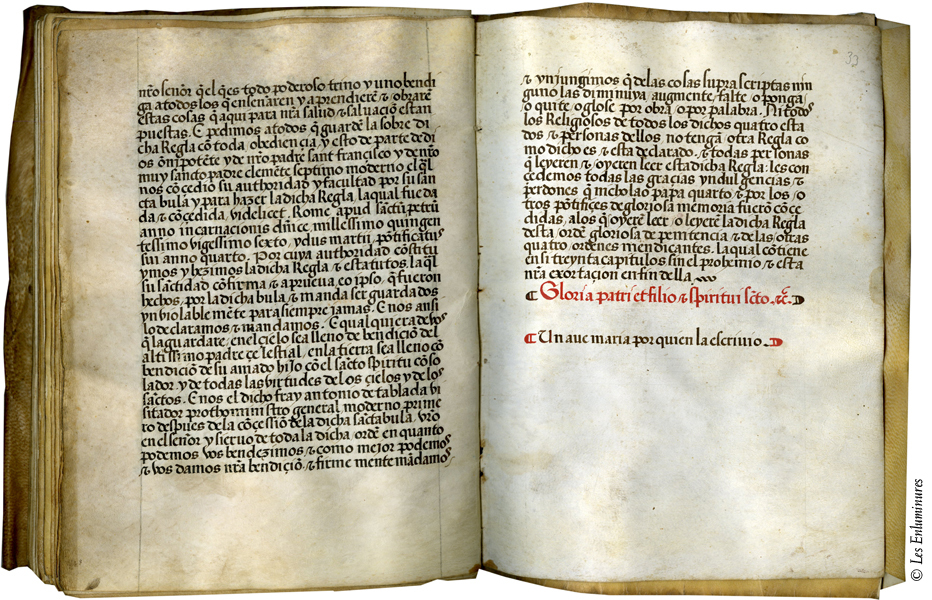 nr̃o señor q̃ el q̃es todo poderoso trino y uno bendi
ga atodos los q̃ enseñaren y aprendierē ⁊ obrarē
estas cosas q̃ aqui para nr̃a salud ⁊ saluaciō estan
puestas. E pedimos atodos q̃ guardē la sobre di
cha Regla cō toda obediencia, y esto de parte de di
os õnipotēte y de nr̃o padre sant francisco y de nr̃o
muy sancto padre clemēte septimo moderno el q̃l
nos cōcedio su authoridad y facultad por su san
cta bula y para hazer la dicha Regla, la qual fue da
da ⁊ cōcedida, videlicet. Rome, apud sanctū petrū
anno incarnacionis dñice, millessimo quingen
tessimo vigessimo sexto, ydus martii, pōtificatus
sui anno quarto. Por cuya authoridad cōstitu
ymos y hezimos la dicha Regla ⁊ estatutos, la q̃l
su sāctidad cōfirma ⁊ aprueua, eo ipso, q̃ fueron
hechos, por la dicha bula ⁊ manda ser guardados
ynviolable mēte para siempre jamas. E nos ansi
lo declaramos ⁊ mandamos. E qual quiera de vos
q̃ la guardare, enel cielo sea lleno de bendiciō del
altissimo padre çelestial, en la tierra sea lleno cō
bendiciō de su amado hijo cō el sācto spiritu cōso
lador, y de todas las virtudes de los çielos y de los
sāctos. E nos el dicho fray antonio de tablada vi
sitador prothoministro general, moderno prime
ro despues de la cōcessiō de la dicha sācta bula, vr̃o
en el señor y sieruo de toda la dicha, ordē en quanto
podemos vos bendezimos ⁊ como mejor podemos
⁊ vos damos nr̃a bendiçiō, ⁊ firme mente mādamos
33
⁊ ynjungimos q̃ de las cosas supra scriptas nin
guno las diminuya, augmente, falte, o ponga
o quite, o glose, por obra, o por palabra. Ni todos
los Religiosos de todos los dichos quatro esta
dos ⁊ personas dellos no tengā otra Regla co
mo dicho es ⁊ esta declarado. ⁊ todas personas
q̃ leyeren ⁊ oyeren leer esta dicha Regla: les con
cedemos todas las gracias yndulgencias ⁊
perdones q̃ nicholao papa quarto ⁊ por los, o
tros pōtifiçes de gloriosa memoria fuerō cōce
didas, a los q̃ oyerē leer, o leyerē la dicha Regla
desta, ordē gloriosa de penitencia ⁊ de las, otras
quatro, ordenes mendicantes. La qual cōtiene
en si treynta capitulos sin el prohemio ⁊ esta
nr̃a exortaçion en fin della
Gloria patri et filio ⁊ spiritui sc̃to. ⁊c̃.
Un aue maria por quien la escriuio.
© Les Enluminures